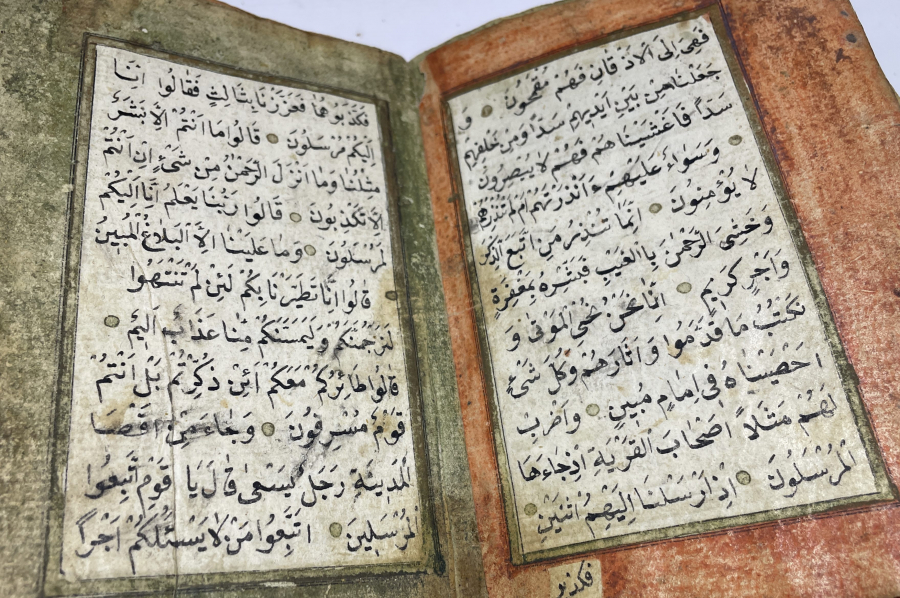 فَهِىَ اِلَى الْاَذْقَانِ فَهُمْ مُقْمَحُونَ وَ
جَعَلْنَا مِنْ بَيْنِ اَيْدِيهِمْ سَدًّا وَمِنْ خَلْفِهِمْ
سَدًّا فَاَغْشَيْنَا هُمْ فَهُمْ لَا يُبْصِرُونَ
وَسَوَاءٌ عَلَيْهِمْ ءَاَنْذَرْتَهُمْ اَمْ لَمْ تُنْذِرْهُمْ
لَا يُؤْمِنُونَ اِنَّمَا تُنْذِرُ مَنِ اتَّبَعَ الذِّكْرَ
وَخَشِىَ الرَّحْمٰنَ بِالْغَيْبِ فَبَشِّرْهُ بِمَغْفِرَةٍ
وَاَجْرٍ كَرِيمٍ اِنَّا نَحْنُ نُحْىِ الْمَوْتٰى وَ
نَكْتُبُ مَا قَدَّمُوا وَاٰثَارَهُمْ وَكُلَّ شَىْءٍ
اَحْصَيْنَاهُ فِى اِمَامٍ مُبِينٍ وَاضْرِبْ
لَهُمْ مَثَلًا اَصْحَابَ الْقَرْيَةِ اِذْجَاءَهَا
الْمُرْسَلُونَ اِذْ اَرْسَلْنَا اِلَيْهِمُ اثْنَيْنِ
فكذبو
فَكَذَّبُوهُمَا فَعَزَّزْنَا بِثَالِثٍ فَقَالُوا اِنَّا
اِلَيْكُمْ مُرْسَلُونَ قَالُوا مَا اَنْتُمْ اِلَّا بَشَرٌ
مِثْلُنَا وَمَا اَنْزَلَ الرَّحْمٰنُ مِنْ شَىْءٍ اِنْ اَنْتُمْ
اِلَّا تَكْذِبُونَ قَالُوا رَبُّنَا يَعْلَمُ اِنَّا اِلَيْكُمْ
لَمُرْسَلُونَ وَمَا عَلَيْنَا اِلَّا الْبَلَاغُ الْمُبِينُ
قَالُوا اِنَّا تَطَيَّرْنَا بِكُمْ لَئِنْ لَمْ تَنْتَهُوا
لَنَرْجُمَنَّكُمْ وَلَيَمَسَّنَّكُمْ مِنَّا عَذَابٌ اَلِيمٌ
قَالُوا طَائِرُكُمْ مَعَكُمْ اَئِنْ ذُكِّرْتُمْ بَلْ اَنْتُمْ
قَوْمٌ مُسْرِفُونَ وَجَاءَ مِنْ اَقْصَا
الْمَدِينَةِ رَجُلٌ يَسْعٰى قَالَ يَا قَوْمِ اتَّبِعُوا
الْمُرْسَلِينَ اتَّبِعُوا مَنْ لَا يَسْئَلُكُمْ اَجْرًا